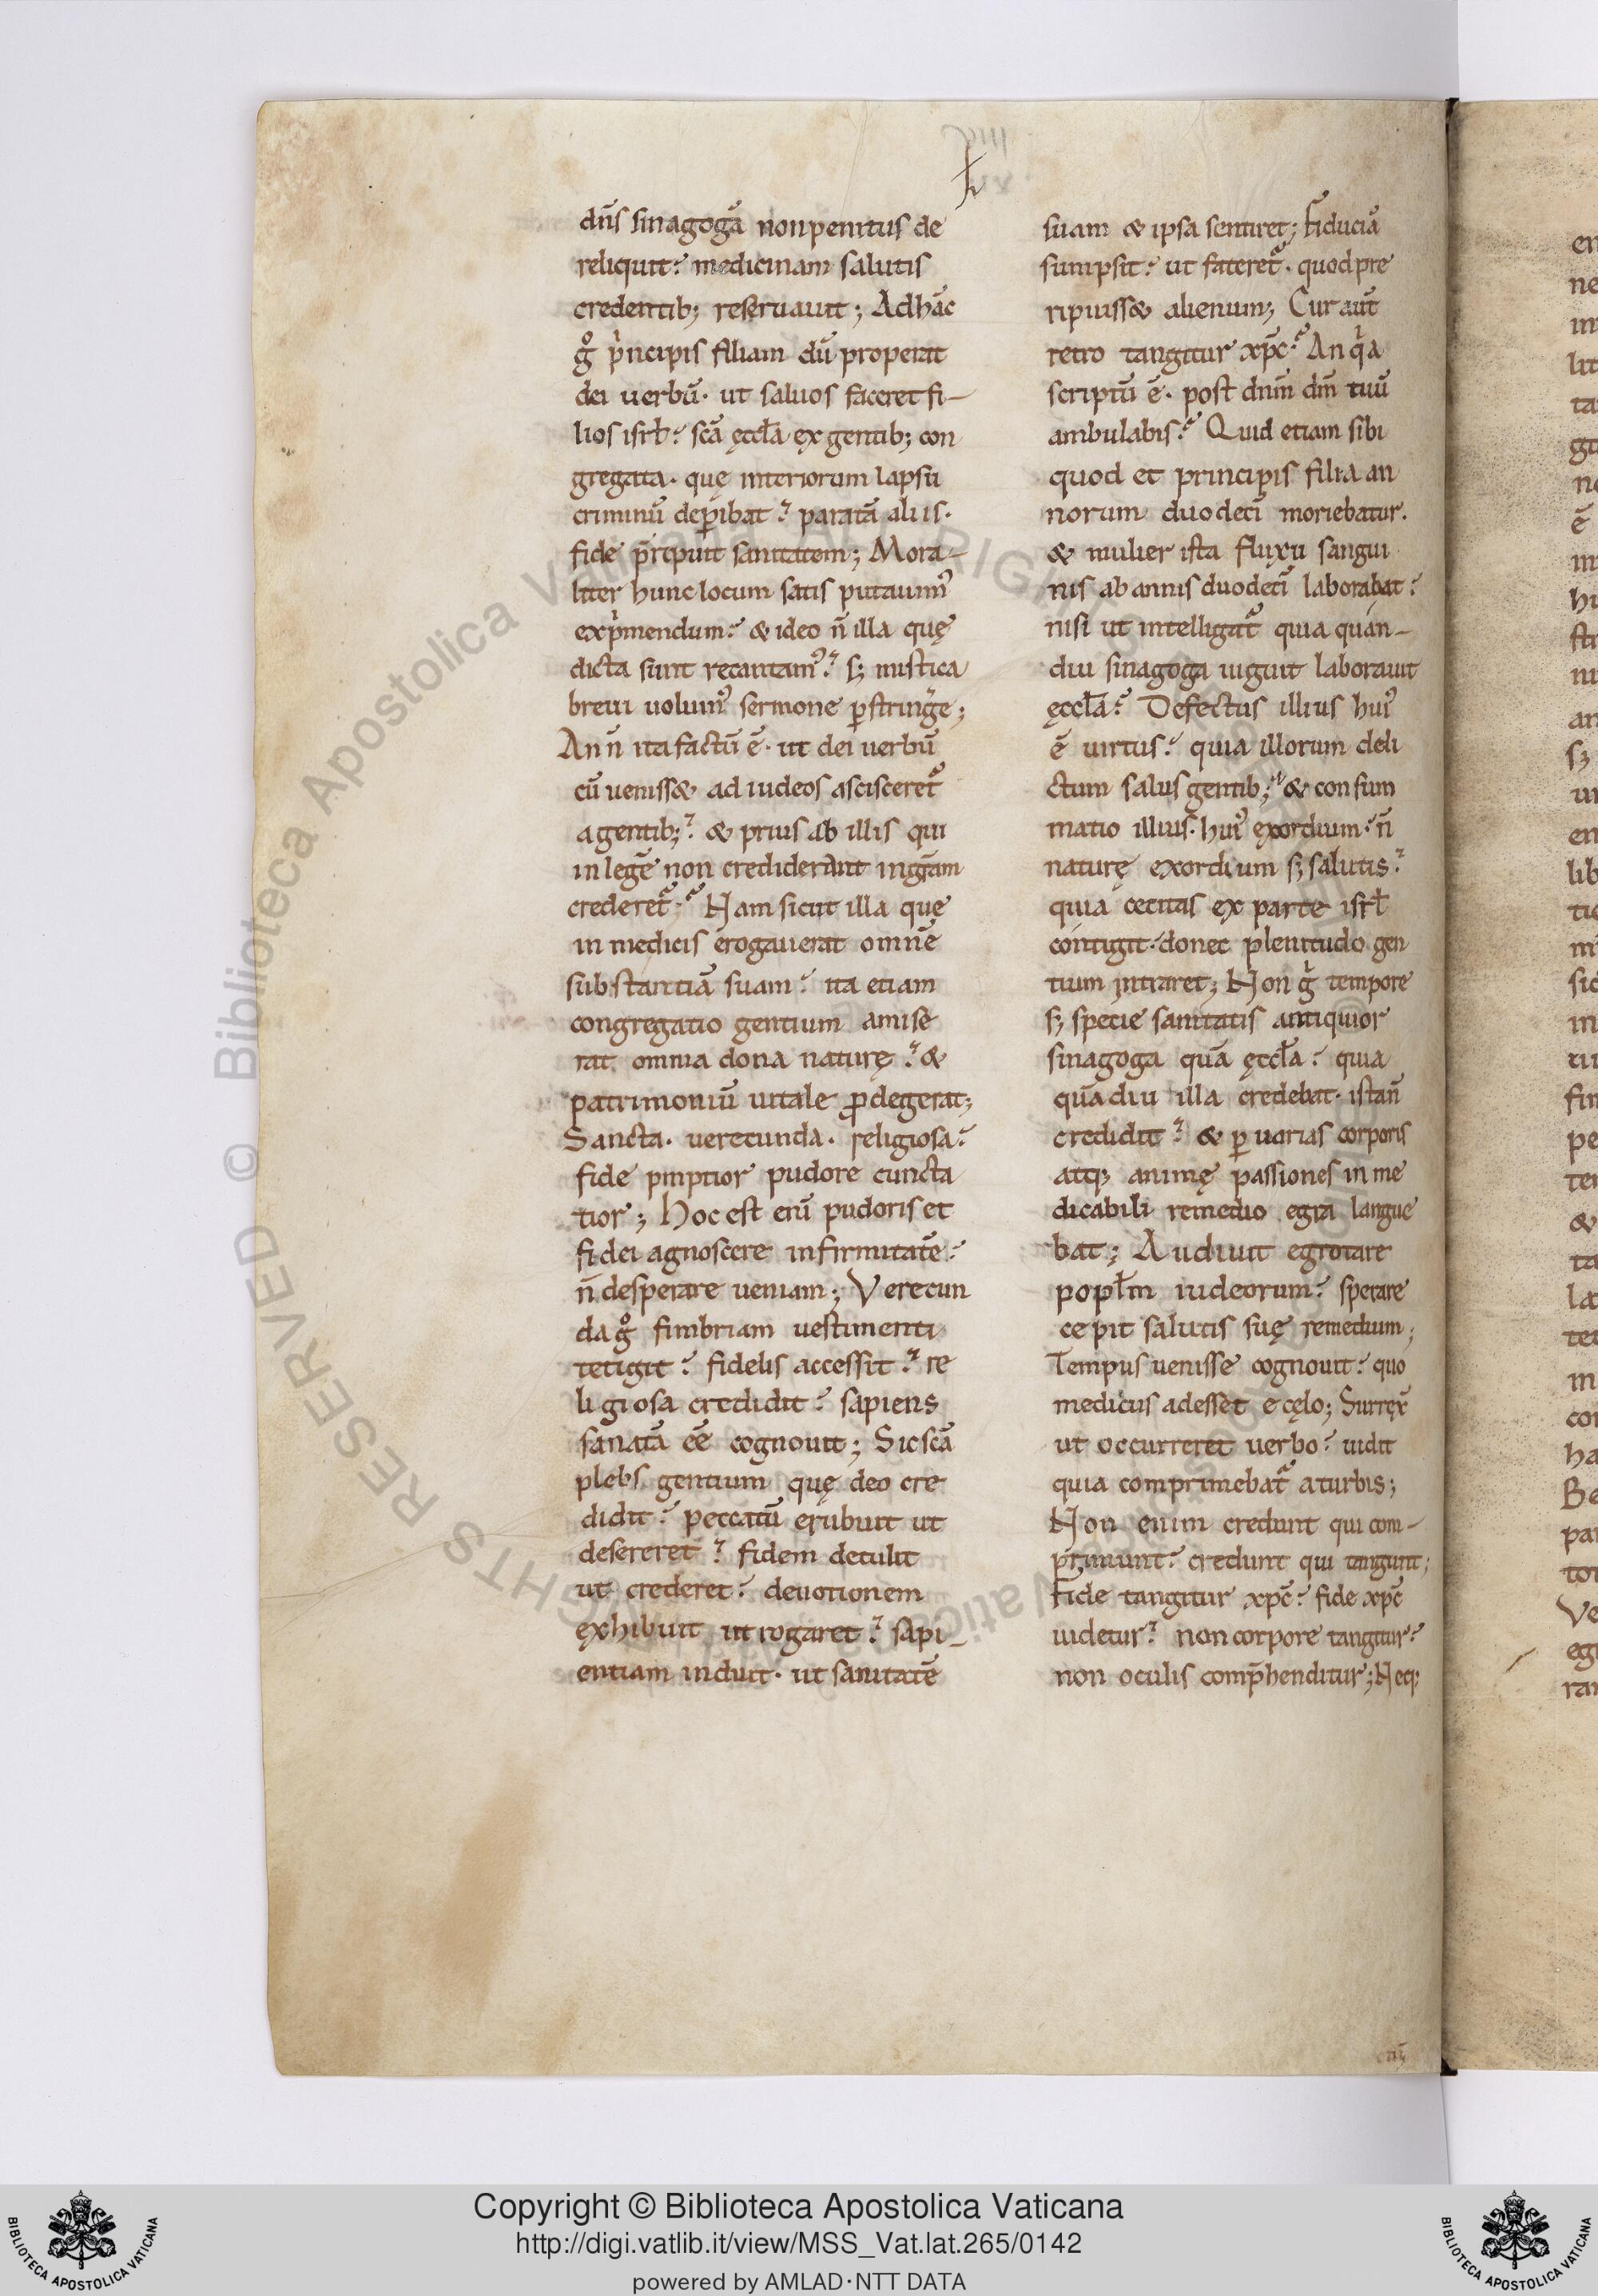 dn̄s sinagogā non penitus de
reliquit? medicinam salutis
credentib; reseruauit; Ad hāc
gͦ pͥncipis filiam dū properat
dei uerbū· ut saluos faceret fi-
lios isrl̄? scā ęccl̄a ex gentib; con
gregata· quę interiorum lapsu
criminū deperibat? paratā aliis·
fide p̄ripuit sanitatem; Mora-
liter hunc locum satis putauim᾽
expͥmendum? & ideo n̄ illa quę
dicta sunt recantam᾽? s; mistica
breui uolum᾽ sermone ꝑstringe̅;
An n̄ ita factū ē· ut dei uerbū
cū ueniss& ad iudeos ascisceret᷑
a gentib;? & prius ab illis qui
in legē non crediderant in gr̄am
crederet᷑? Nam sicut illa quę
in medicis erogauerat omnē
substantiā suam? ita etiam
congregatio gentium amise
rat omnia dona naturę? &
patrimoniū uitale ꝓdegerat;
Sancta· uerecunda· religiosa?
fide pmptior pudore cuncta
tior; Hoc est enī pudoris et
fidei agnoscere infirmitatē?
n̄ desperare ueniam; Verecun
da gͦ fimbriam uestimenti
tetigit? fidelis accessit? re
ligiosa credidit? sapiens
sanatā eē cognouit; Sic scā
plebs gentium quę deo cre
didit? peccatū erubuit ut
desereret? fidem detulit
ut crederet? deuotionem
exhibuit ut rogaret? sapi-
entiam induit· ut sanitatē
suam & ipsa sentiret; Fiduciā
sumpsit? ut fateret᷑· quod pre
ripuiss& alienum; Cur aūt
retro tangitur xp̄c? An qͥa
scriptū ē· post dnm̄ dm̄ tuū
ambulabis? Quid etiam sibi
quod et principis filia an
norum duodecī moriebatur·
& mulier ista fluxu sangui
nis ab annis duodecī laborabat?
nisi ut intelligat᷑ quia quan-
diu sinagoga uiguit laborauit
ęccl̄a? Defectus illius hui᾽
ē uirtus? quia illorum deli
ctum salus gentib;? & consum
matio illius· hui᾽ exordium? n̄
naturę exordium s; salutis?
quia cecitas ex parte isrl̄
contigit· donec plenitudo gen
tium intraret; Non gͥ tempore
s; specie sanitatis antiquior
sinagoga quā ęccl̄a? quia
quādiu illa credebat· ista n̄
credidit? & ꝑ uarias corporis
atq; animę passiones in me
dicabili remedio egra langue
bat; Audiuit egrotare
popl̄m iudeorum? sperare
cepit salutis suę remedium;
Tempus uenisse cognouit? quo
medicus adesset e cęlo; Surrex̄
ut occurreret uerbo? uidit
quia comprimebat᷑ a turbis;
Non enim credunt qui com-
primunt? credunt qui tangunt;
Fide tangitur xp̄c? fide xp̄c
uidetur? non corpore tangitur?
non oculis comp̄henditur; Neq;
Copyright © Biblioteca Apostolica Vaticana
http://digi.vatlib.it/view/MSS_Vat.lat.265/0142
powered by AMLAD·NTT DATA